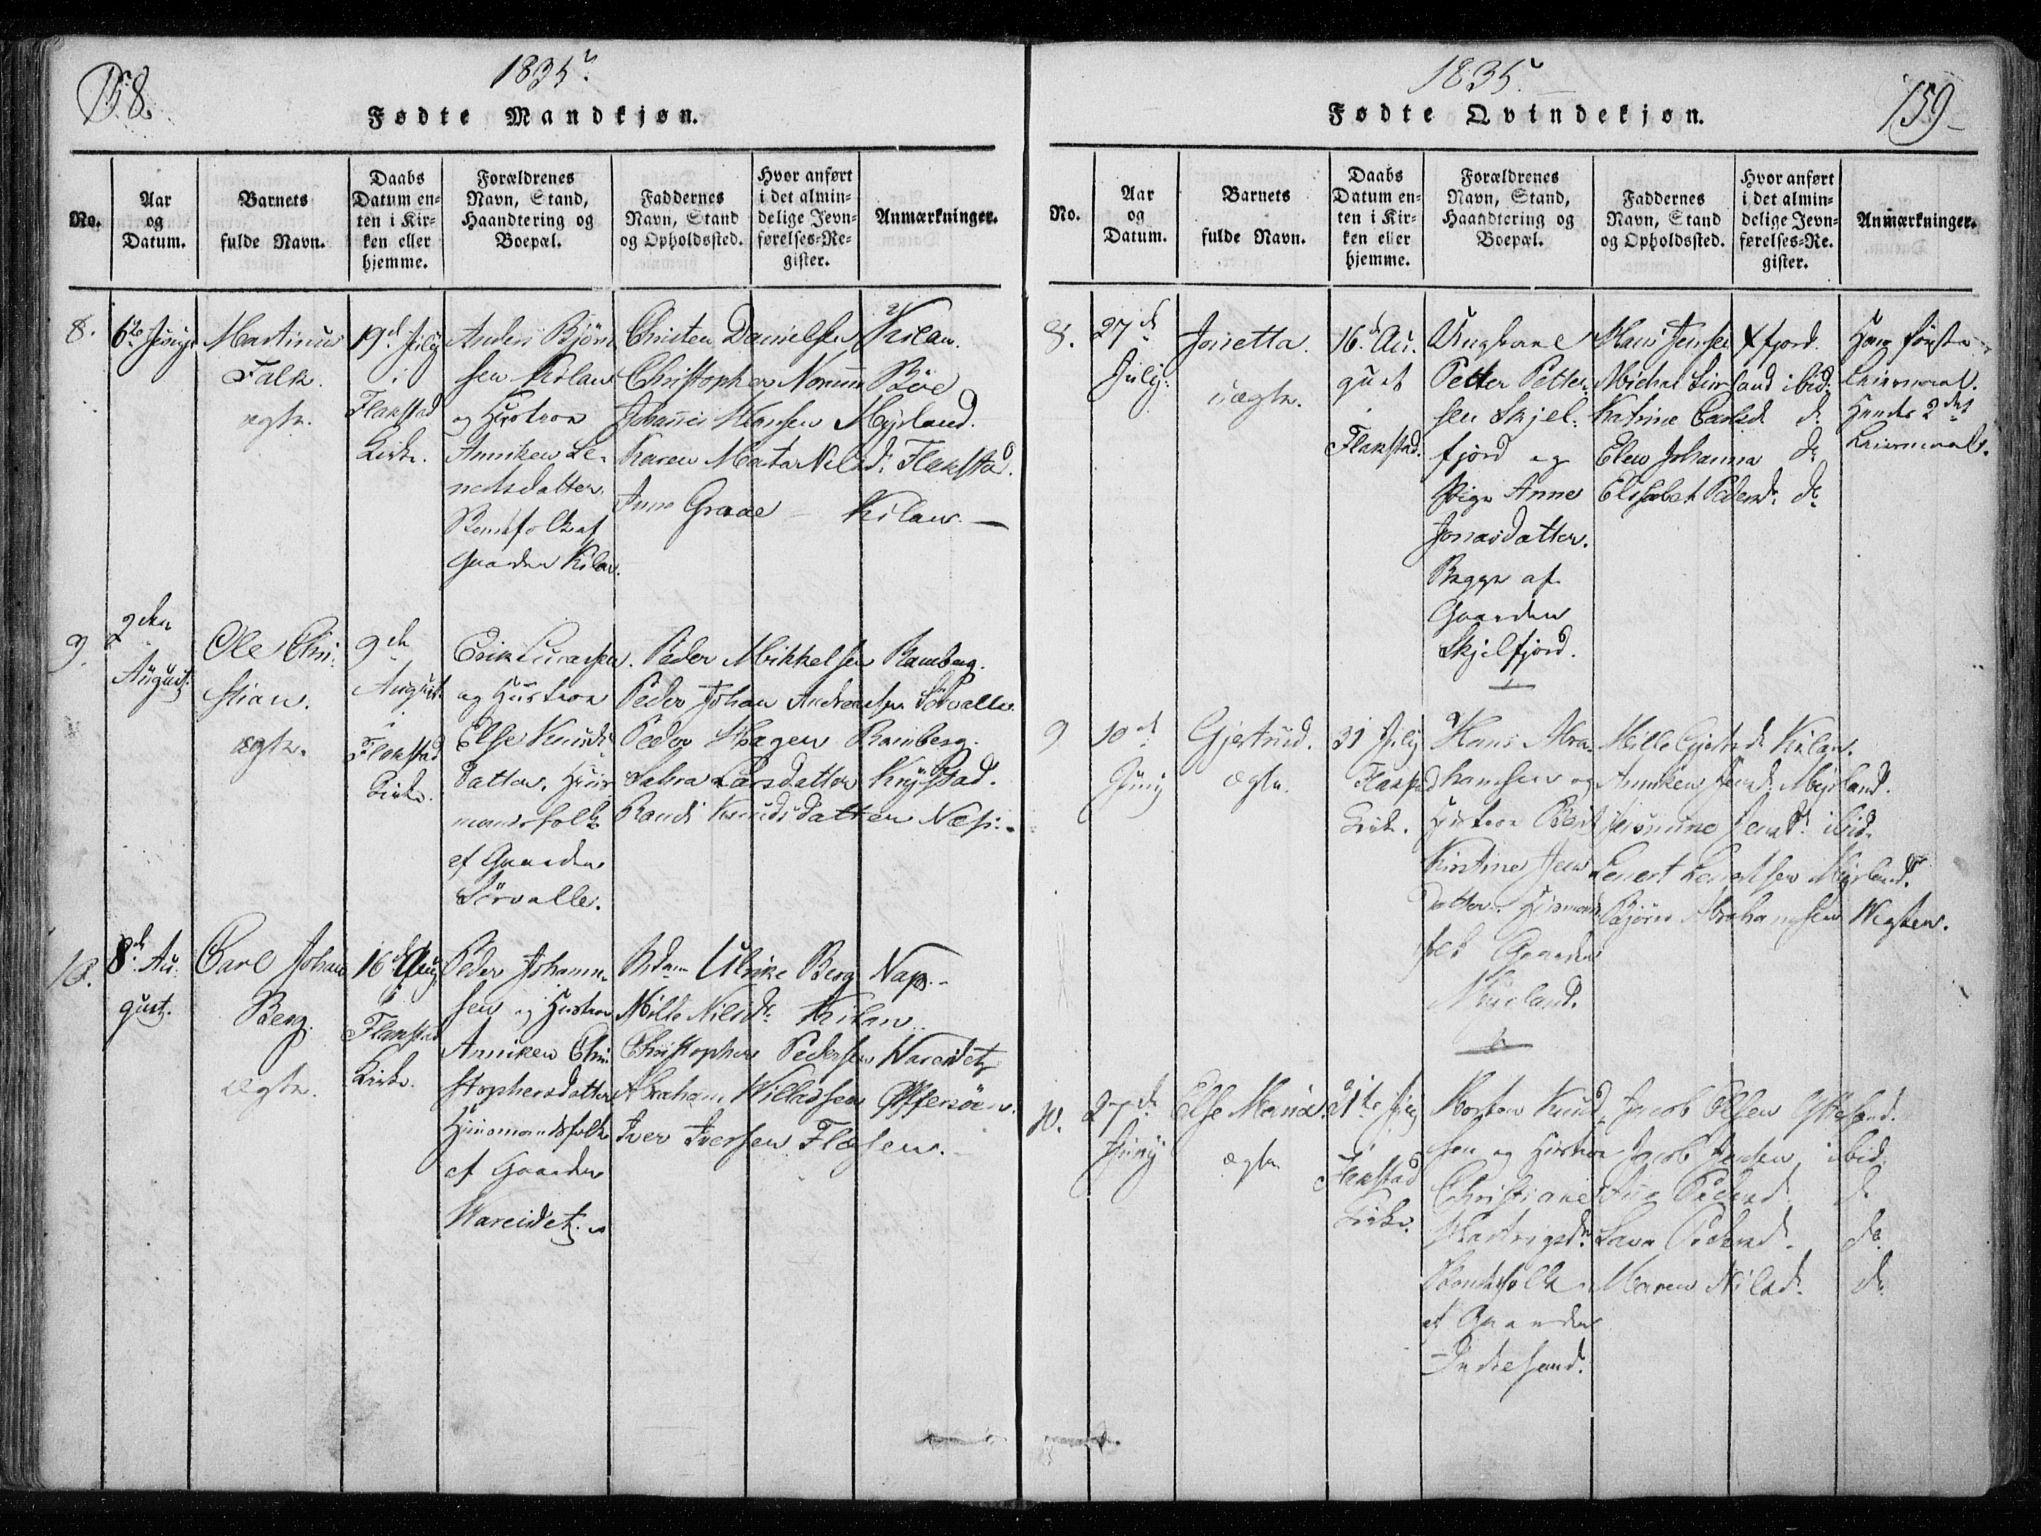 158.
1835.
Fødte Mandkjøn.
No.
Aar
og
Datum.
Barnets
fulde Navn.
Daabs
Datum en-
ten i Kir-
ken eller
hjemme.
Forældrenes
Navn, Stand,
Haandtering og
Boepæl.
Faddernes
Navn, Stand
og Opholdssted.
Hvor anført
i det almin-
delige Jevn-
førelses-Re-
gister.
Anmærkninger.
8.
6te Juny
Martinus
Falk.
ægte.
19de July
i
Flakstad
Kirke.
Anders Bjørn
sen Kilan
og Hustroe
Anniken Le-
netsdatter.
Bondefolk af
Gaarden Kilan.
Christen Danielsen Kilan.
Christopher Normun Bøe
Johannes Hansen Myrland.
Karen Marta Nilsd. Flakstad.
Graae Kilan.
9.
2den
August.
Ole Chri-
stian.
ægte.
9de
August
i
Flakstad
Kirke.
Erik Lucassen
og Hustroe
Else Knuds
datter, Huus-
mandsfolk
af Gaarden
Sörvalle.
Peder Mikkelsen Ramberg.
Peder Johan Andreasen Sörvalle.
Peder Hagen Ramberg.
Larsdatter Krystad.
Randi Knudsdatter Næs.
10.
8de Au-
gust.
Carl Johan
Berg.
ægte.
16de Aug.
i
Flakstad
Kirke.
Peder Johann-
sen og Hustroe
Anniken Chri-
stophersdatter
Huusmandsfolk
af Gaarden
Vareidet.
Ulrike Berg Nap.
Mille Nilsd. Kilan.
Christopher Pedersen Vareidet
Abraham Willadsen Offersöen.
Iver Iversen Flæsen.
1835.
159
Fødte Qvindekjøn.
No.
Aar
og
Datum.
Barnets
fulde Navn.
Daabs
Datum en-
ten i Kir-
ken eller
hjemme.
Forældrenes
Navn, Stand,
Haandtering og
Boepæl.
Faddernes
Navn, Stand
og Opholdssted.
Hvor anført
i det almin-
delige Jevn-
førelses-Re-
gister.
Anmærkninger.
8.
27de
July.
Jonetta.
uægte.
16. Au-
gust
i
Flakstad.
Ungkarl
Petter Petter-
sen Skjel-
fjord og
Pige Anne
Jonasdatter.
Begge af
Gaarden
Skjelfjord.
Hans Jensen fjord.
Michal ibid.
Katrine Carlsd. do
Elen Johanna do
Elisabet Pedersd. do
Hans første
Leiermaal.
Hendes 2det
Leiermaal.
9
10de
Juny
Gjertrud.
ægte.
31 July
Flakstad
Kirke.
Hans Abra-
hamsen og
Hustroe Berit
Kirstine Jens
datter. Huusmands
folk Gaarden
Myrland.
Mille Kilan.
Anniken Jensd. Myrland.
Jensd. ibid.
Lenert Lenertsen Myrland.
Bjørn Abrahamsen Vegsten.
10.
27de
Juny
Else Maria
ægte
21te July
i
Flakstad
Kirke.
Morten Knud
sen og Hustroe
Christiane
Hartvigsd.
Bondefolk
af Gaarden
Indresand.
Jacob Olsen
Jacob Jensen ibid.
Pedersd. do
Pedersd. do
Maren Nilsd. do